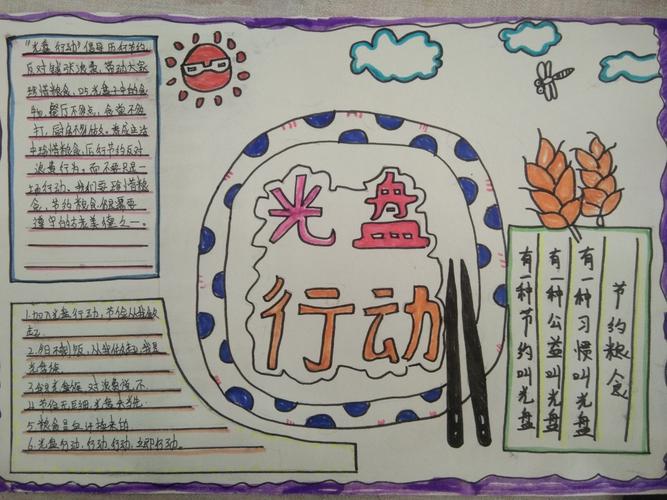 "光盘行动"倡导厉行节约
反对铺张浪费，带动大家
珍惜粮食，吃光盘子中的食
物，餐厅不多点，食堂不多
打，厨房不多做。养成生活
中珍惜粮食，厉行节约反对
浪费行为。而不要只是一
场行动，我们要珍惜粮
食，节约粮食仍需要
遵守的优美德之一。
光盘
行动
1.加入光盘行动，节俭从我做
起。
光盘族
3.我光盘族，对浪费说不
4.节俭无巨细，光盘
5.粮食是
6.光盘行动，行动，行动，立即行动。
节约粮食
有一种习惯叫光盘
有一种公益叫光盘
有一种节约叫光盘